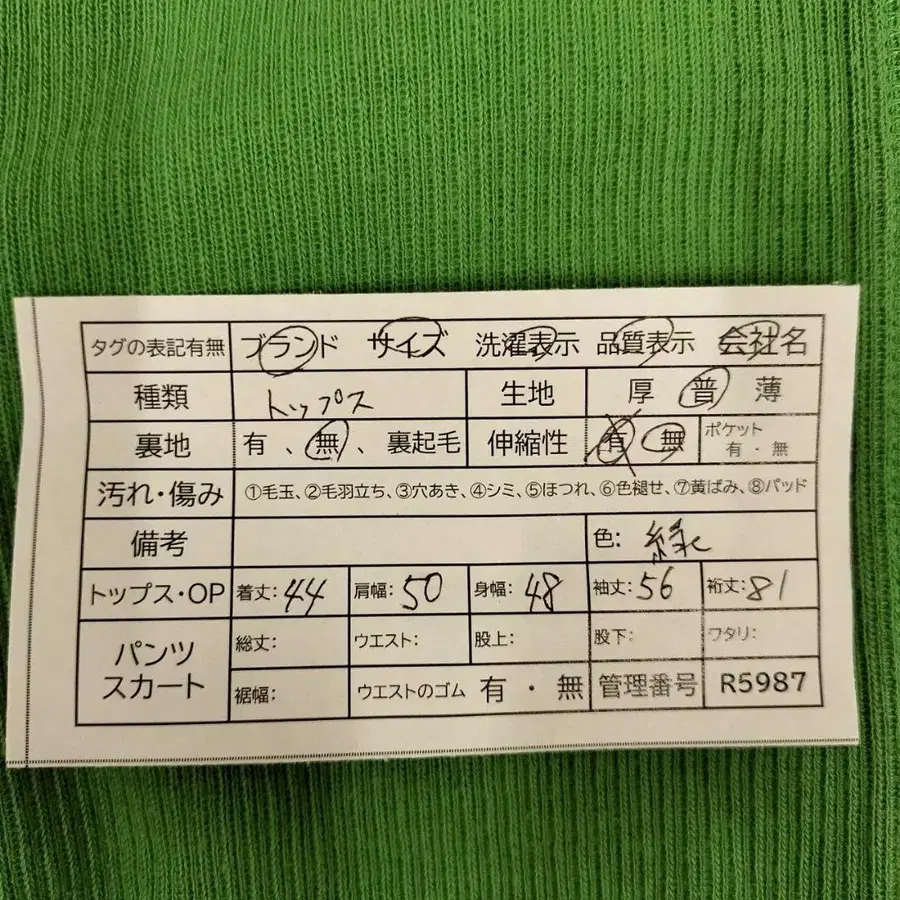 タグの表記有無 ブランド サイズ 洗濯表示 品質表示 会社名
種類 トップス 生地 厚 普 薄
裏地 有 、無 、裏起毛 伸縮性 有 無 ポケット 有・無
汚れ・傷み ①毛玉、②毛羽立ち、③穴あき、④シミ、⑤ほつれ、⑥色褪せ、⑦黄ばみ、⑧パッド
備考 色: 緑
トップス・OP 着丈: 44 肩幅: 50 身幅: 48 袖丈: 56 裄丈: 81
パンツ スカート 総丈: ウエスト: 股上: 股下: ワタリ:
裾幅: ウエストのゴム 有 ・ 無 管理番号 R5987